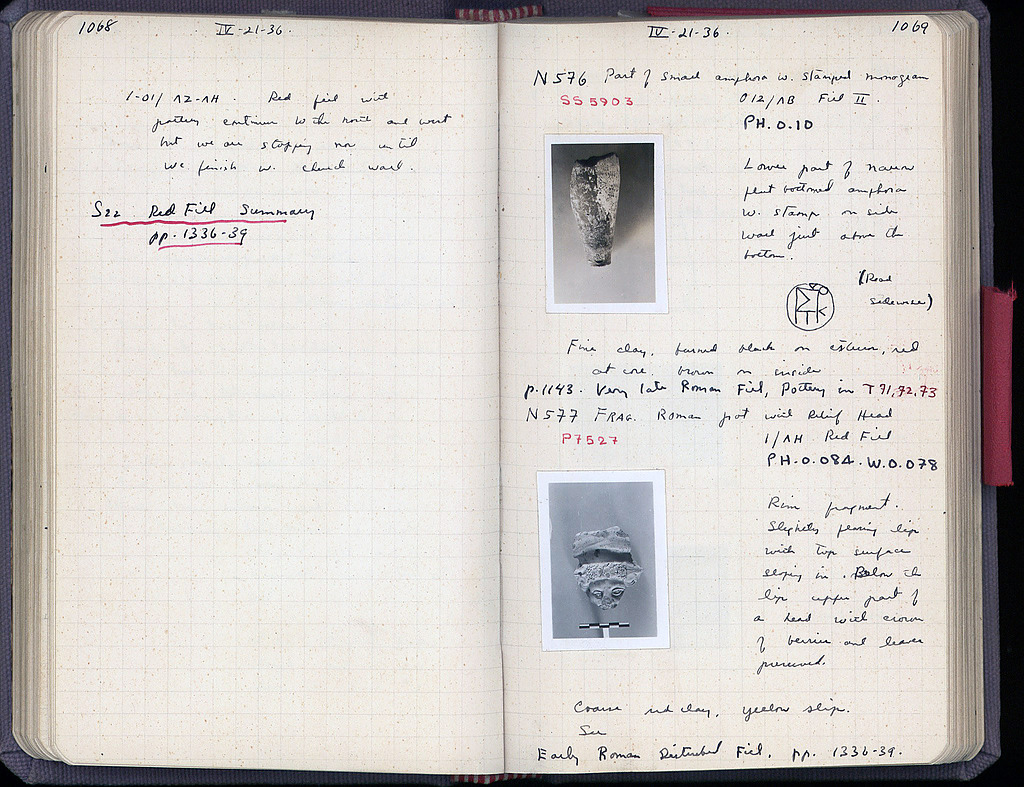 1068
IV-21-36.
1-01/ΛZ-ΛH. Red fill with
pottery continues to the north and west
but we are stopping now until
we finish w. church wall.
See Red Fill Summary
pp. 1336-39
IV-21-36.
1069
N576 Part of small amphora w. stamped monogram
SS 5903
012/ΛB Fill II.
PH. 0.10
Lower part of narrow
flat bottomed amphora
w. stamp on side
wall just above the
bottom.
(Read
sidewise)
Fine clay, burned black on exterior, red
at core, brown on inside
p. 1143. Very late Roman Fill, Pottery in T 71, 72, 73
N577 FRAG. Roman pot with Relief Head
P7527
1/ΛH Red Fill
PH. 0.084. W. 0.078
Rim fragment.
Slightly flaring lip
with top surface
sloping in. Below the
lip upper part of
a head with crown
of berries and leaves
preserved.
Coarse red clay, yellow slip.
See
Early Roman Disturbed Fill, pp. 1336-39.